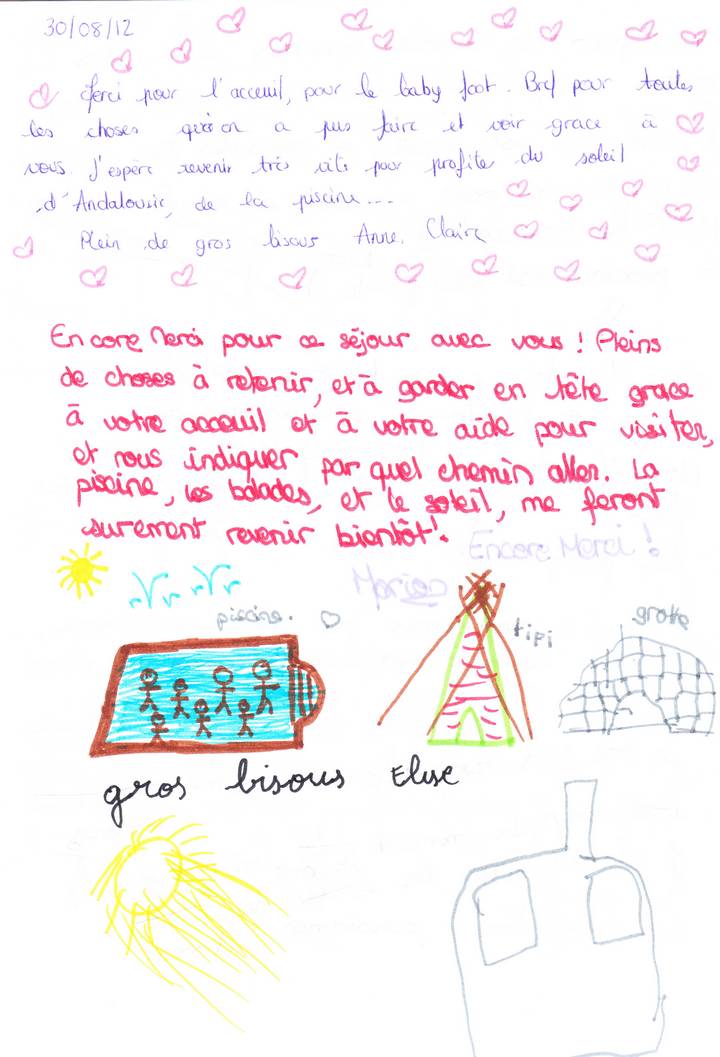 30/08/12
Merci pour l'acceuil, pour le baby foot. Bref pour toutes
les choses qu'on a pus faire et voir grace à
vous. J'espère revenir très vite pour profite du soleil
d'Andalousie, de la piscine...
Plein de gros bisous Anne. Claire
Encore Merci pour ce séjour avec vous ! Pleins
de choses à retenir, et à garder en tête grace
à votre acceuil et à votre aide pour visiter,
et nous indiquer par quel chemin aller. La
piscine, les balades, et le soleil, me feront
surement revenir bientôt !
Encore Merci !
Marion
piscine.
tipi
grotte
gros bisous Elise